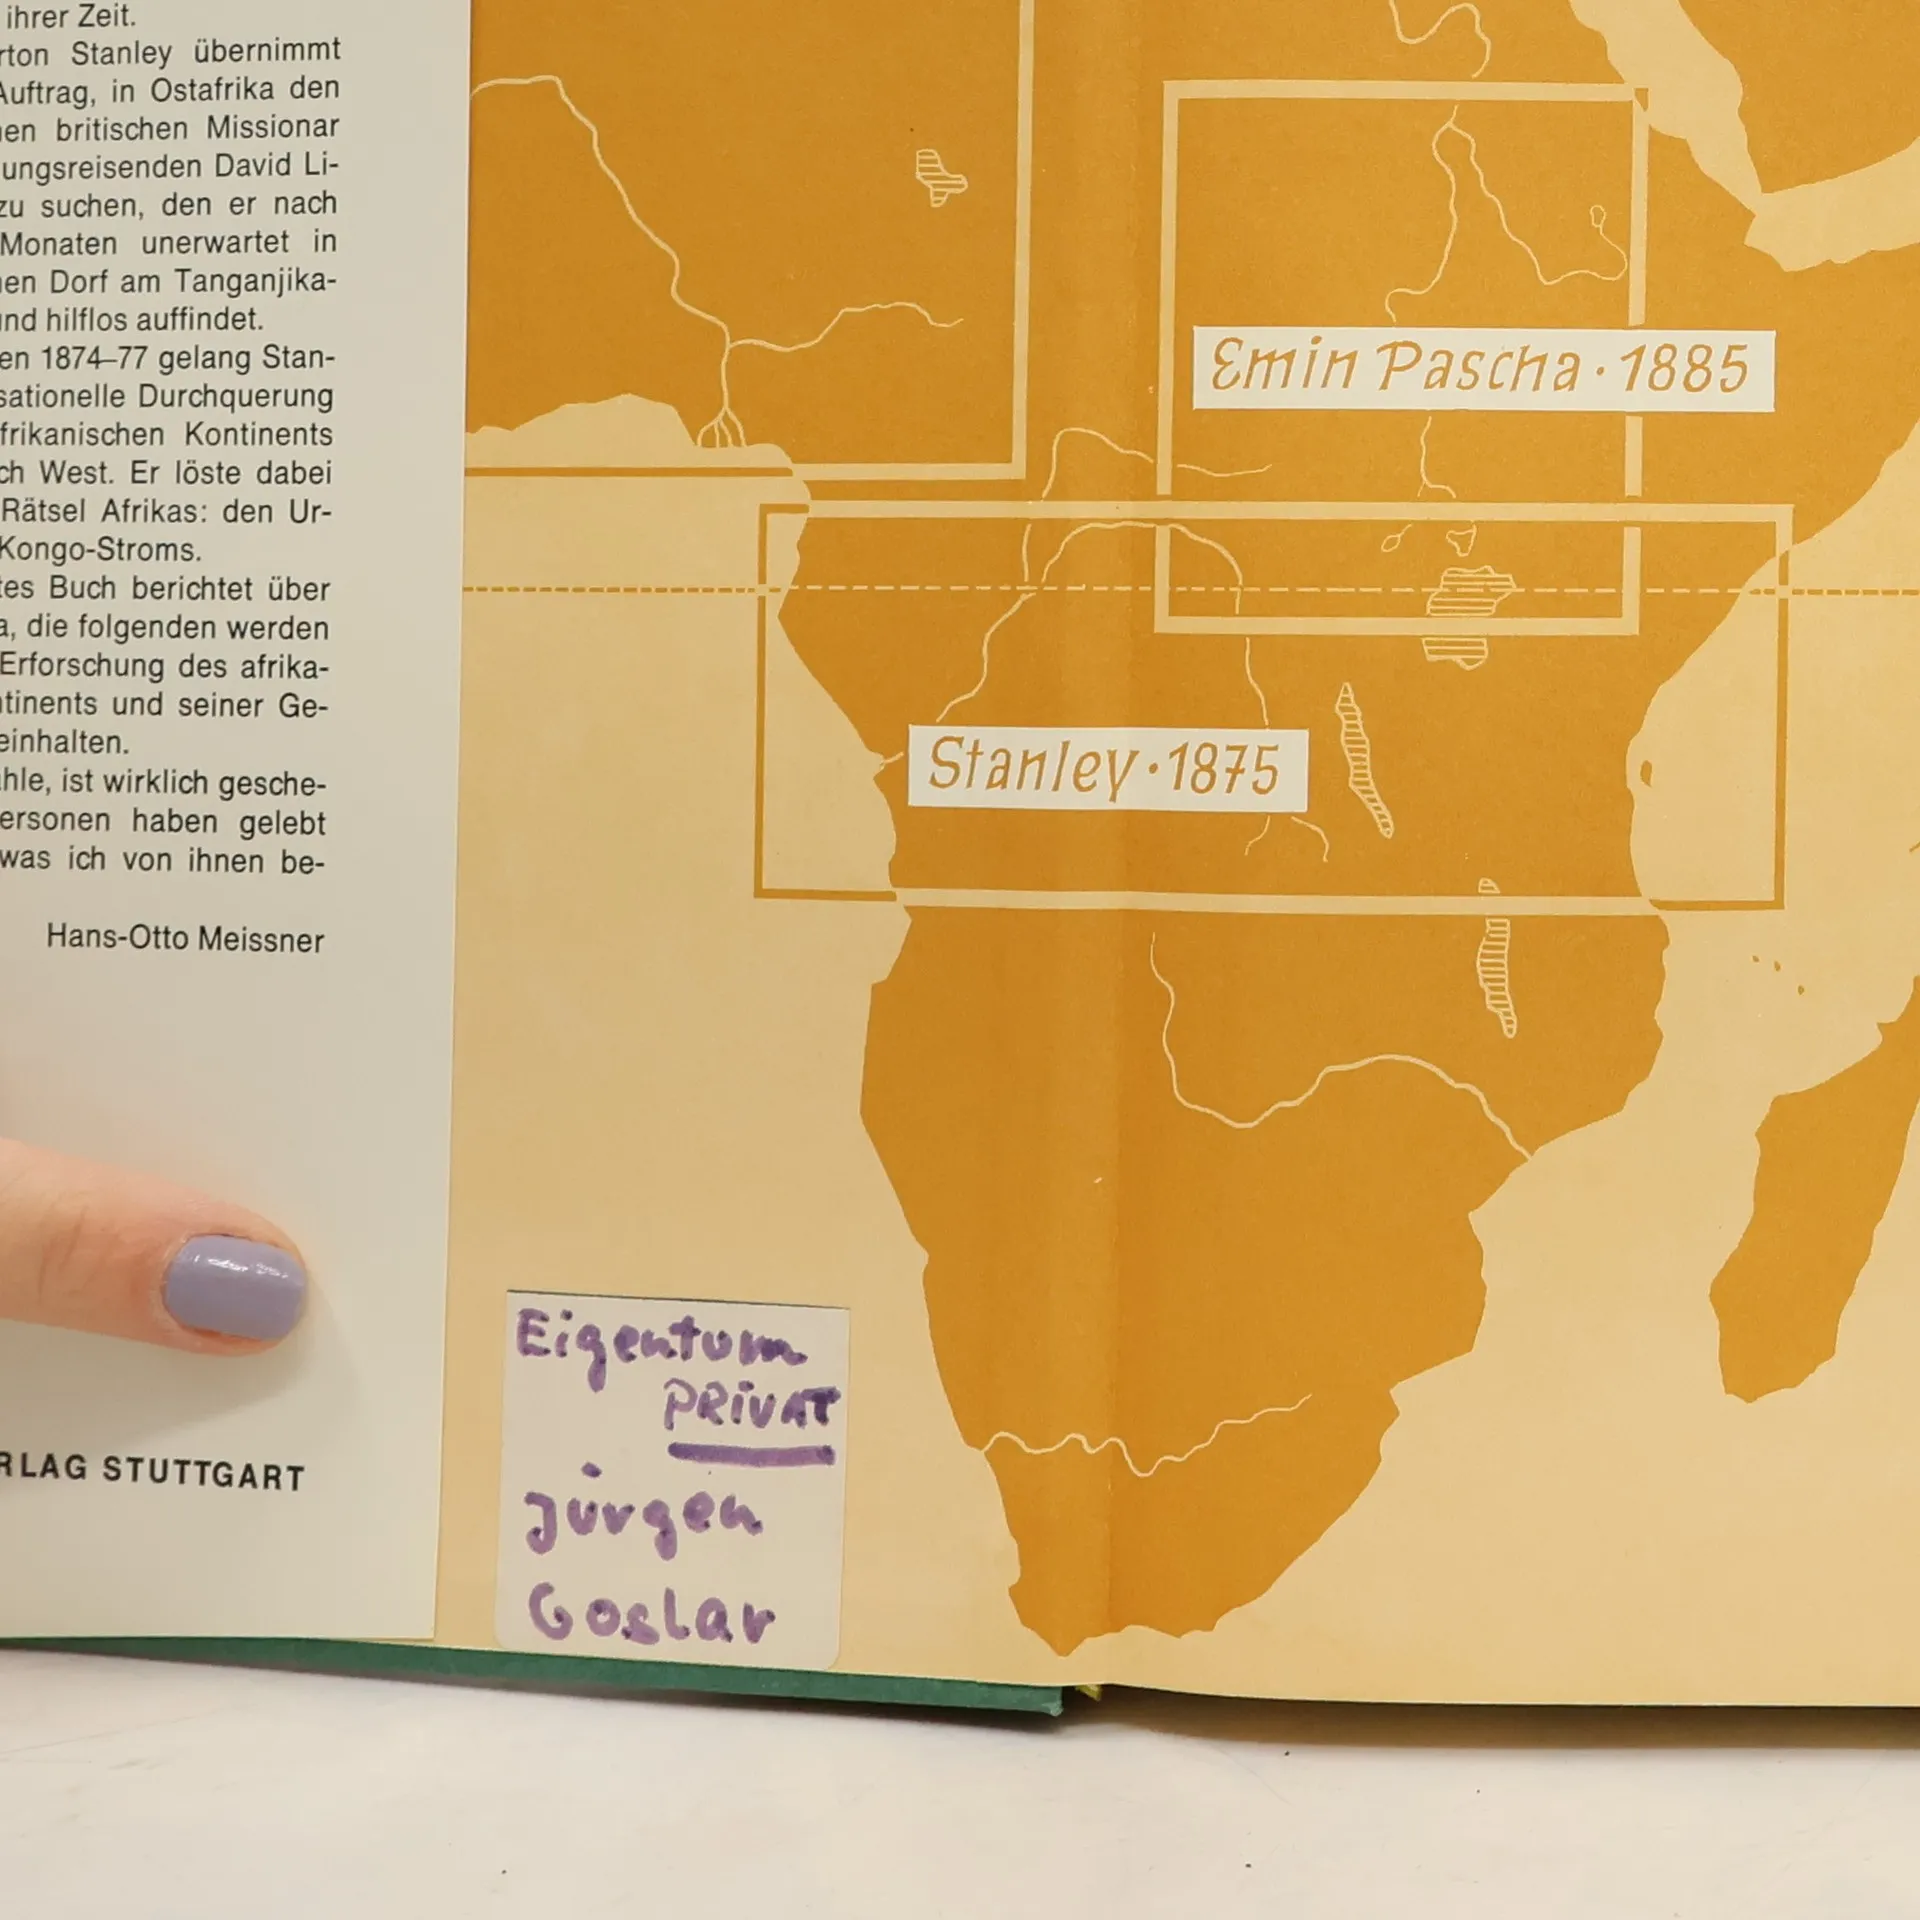 ihrer Zeit.
rton Stanley übernimmt
Auftrag, in Ostafrika den
en britischen Missionar
ungsreisenden David Li-
zu suchen, den er nach
Monaten unerwartet in
en Dorf am Tanganjika-
nd hilflos auffindet.
en 1874–77 gelang Stan-
sationelle Durchquerung
frikanischen Kontinents
ch West. Er löste dabei
Rätsel Afrikas: den Ur-
Kongo-Stroms.
tes Buch berichtet über
a, die folgenden werden
Erforschung des afrika-
ntinents und seiner Ge-
einhalten.
hle, ist wirklich gesche-
ersonen haben gelebt
was ich von ihnen be-
Hans-Otto Meissner
RLAG STUTTGART
Emin Pascha · 1885
Stanley · 1875
Eigentum
PRiVAT
Jürgen
Goslar